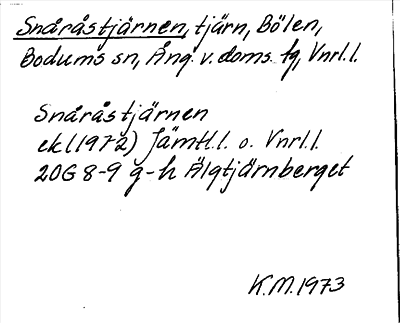 Snåråstjärnen, tjärn, Bölen,
Bodums sn, Ång. v. doms. tg, Vnrl.l.
Snåråstjärnen
ek(1972) Jämtl.l. o. Vnrl.l.
20G 8-9 g-h Älgtjärnberget
K.M. 1973